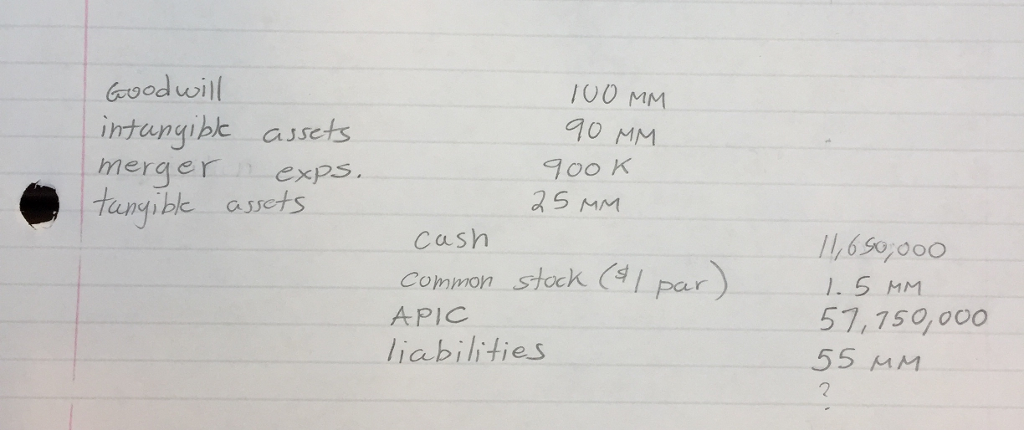 Goodwill 100 MM
intangible assets 90 MM
merger exps. 900 K
tangible assets 25 MM
cash 11,650,000
common stock ($1 par) 1.5 MM
APIC 57,750,000
liabilities 55 MM
?